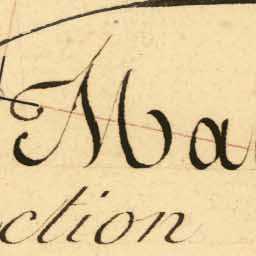 Ma
ction